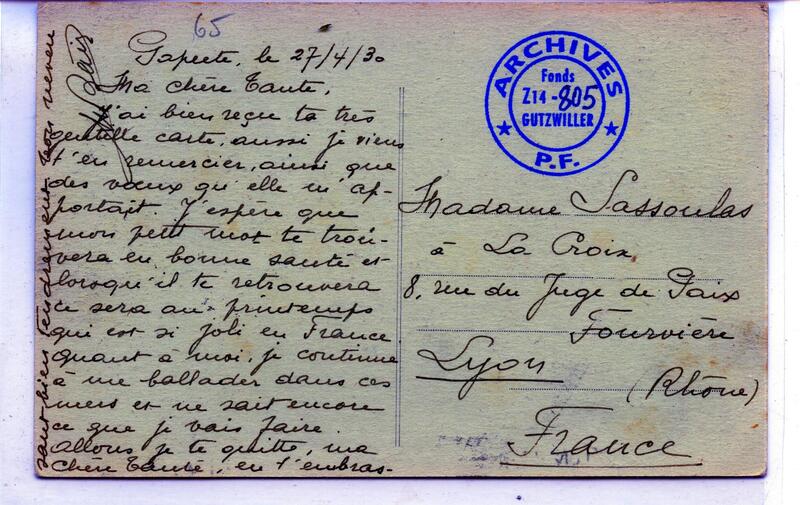 65
Papeete, le 27/4/30
Ma chère Tante,
J'ai bien reçu ta très
gentille carte, aussi je viens
t'en remercier, ainsi que
des vœux qu'elle m'ap-
portait. J'espère que
mon petit mot te trou-
vera en bonne santé et
lorsqu'il te retrouvera
ce sera au printemps
qui est si joli en France
Quant à moi, je continue
à me ballader dans ces
mers et ne sait encore
ce que je vais faire.
Allons je te quitte, ma
chère Tante, en t'embras-
sant bien tendrement. Ton neveu
ARCHIVES
Fonds
Z14-805
GUTZWILLER
P.F.
Madame Lassoulas
à La Croix
8, rue du Juge de Paix
Fourvière
Lyon
(Rhône)
France